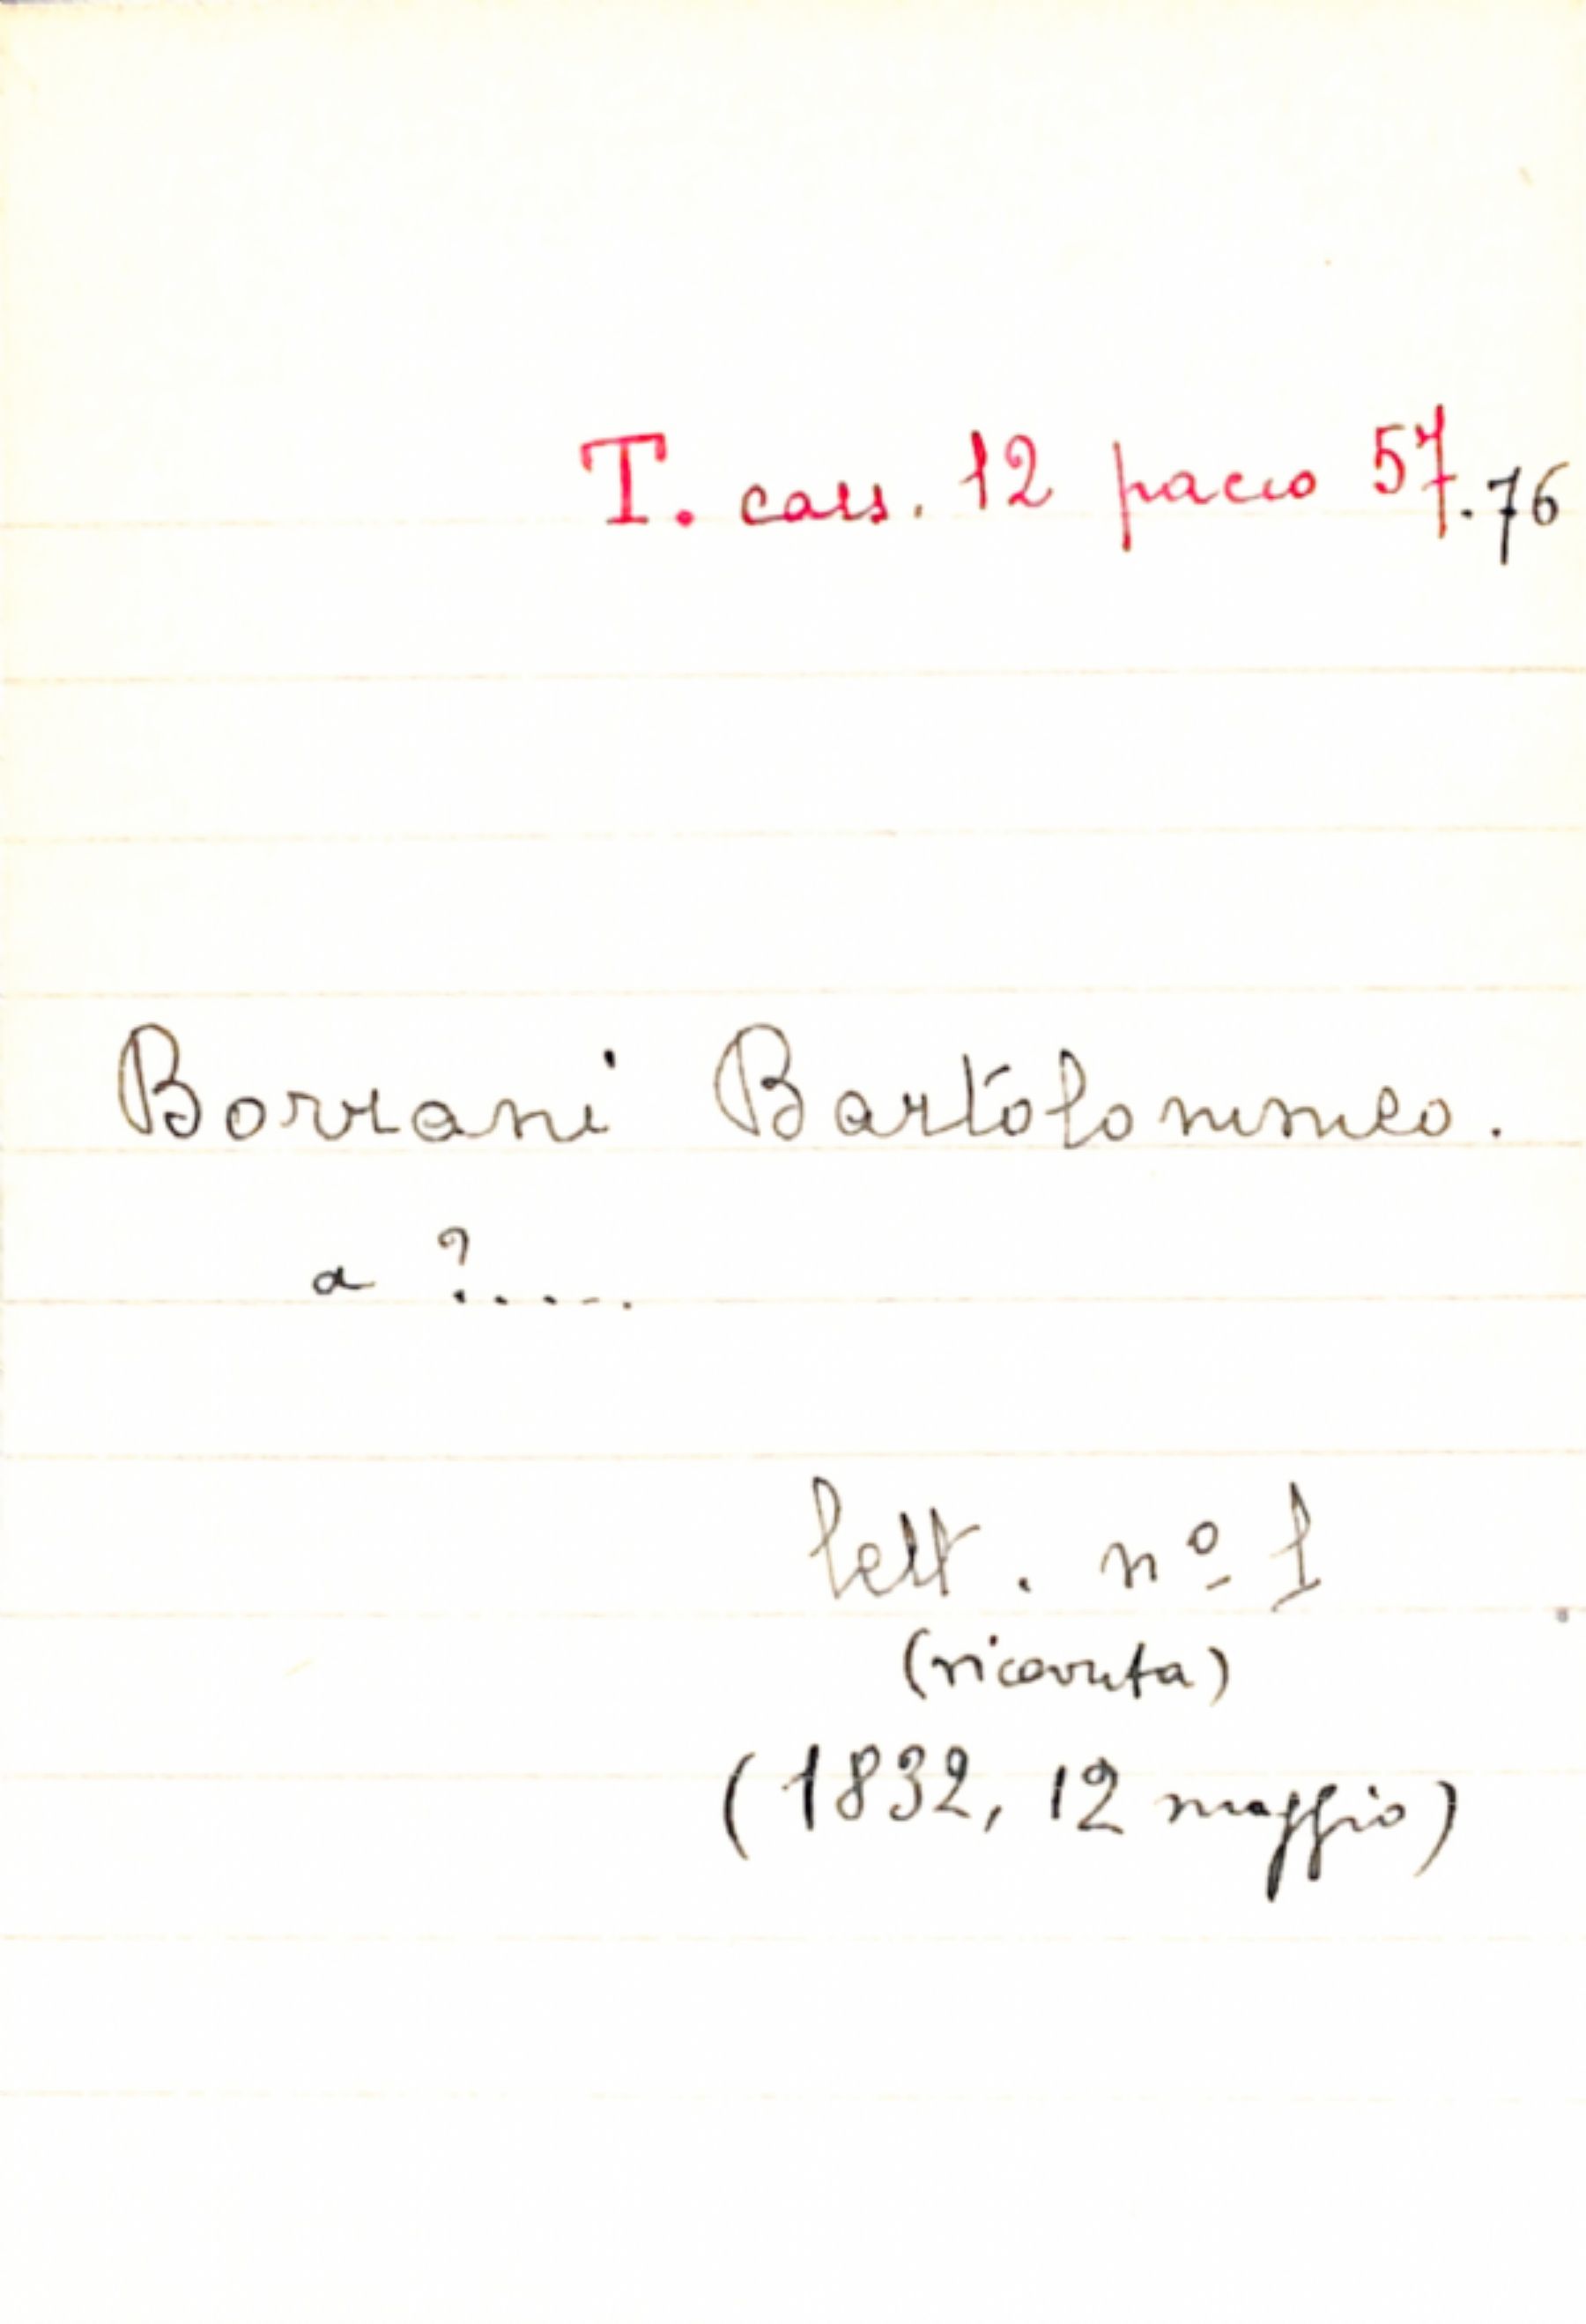 T. cass. 12 pacco 57.76
Borrani Bartolommeo.
a ?.....
lett. nº 1
(ricevuta)
(1832, 12 maggio)